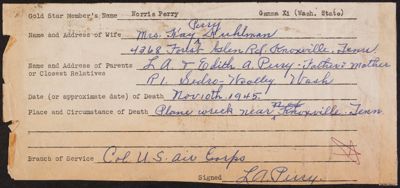 Gold Star Member's Name Norris Perry Gamma Xi (Wash. State)
Perry
Name and Address of Wife Mrs. Kay Kuhlman
4368 Forest Glen Rd. Knoxville. Tenn
Name and Address of Parents L.A. & Edith A. Perry - Father & Mother
or Closest Relatives
R1. Sedro-Woolley Wash
Date (or approximate date) of Death Nov 10th 1945.
Place and Circumstance of Death Plane wreck near Knoxville. Tenn.
Branch of Service Col U.S. Air Corps
Signed L.A. Perry.